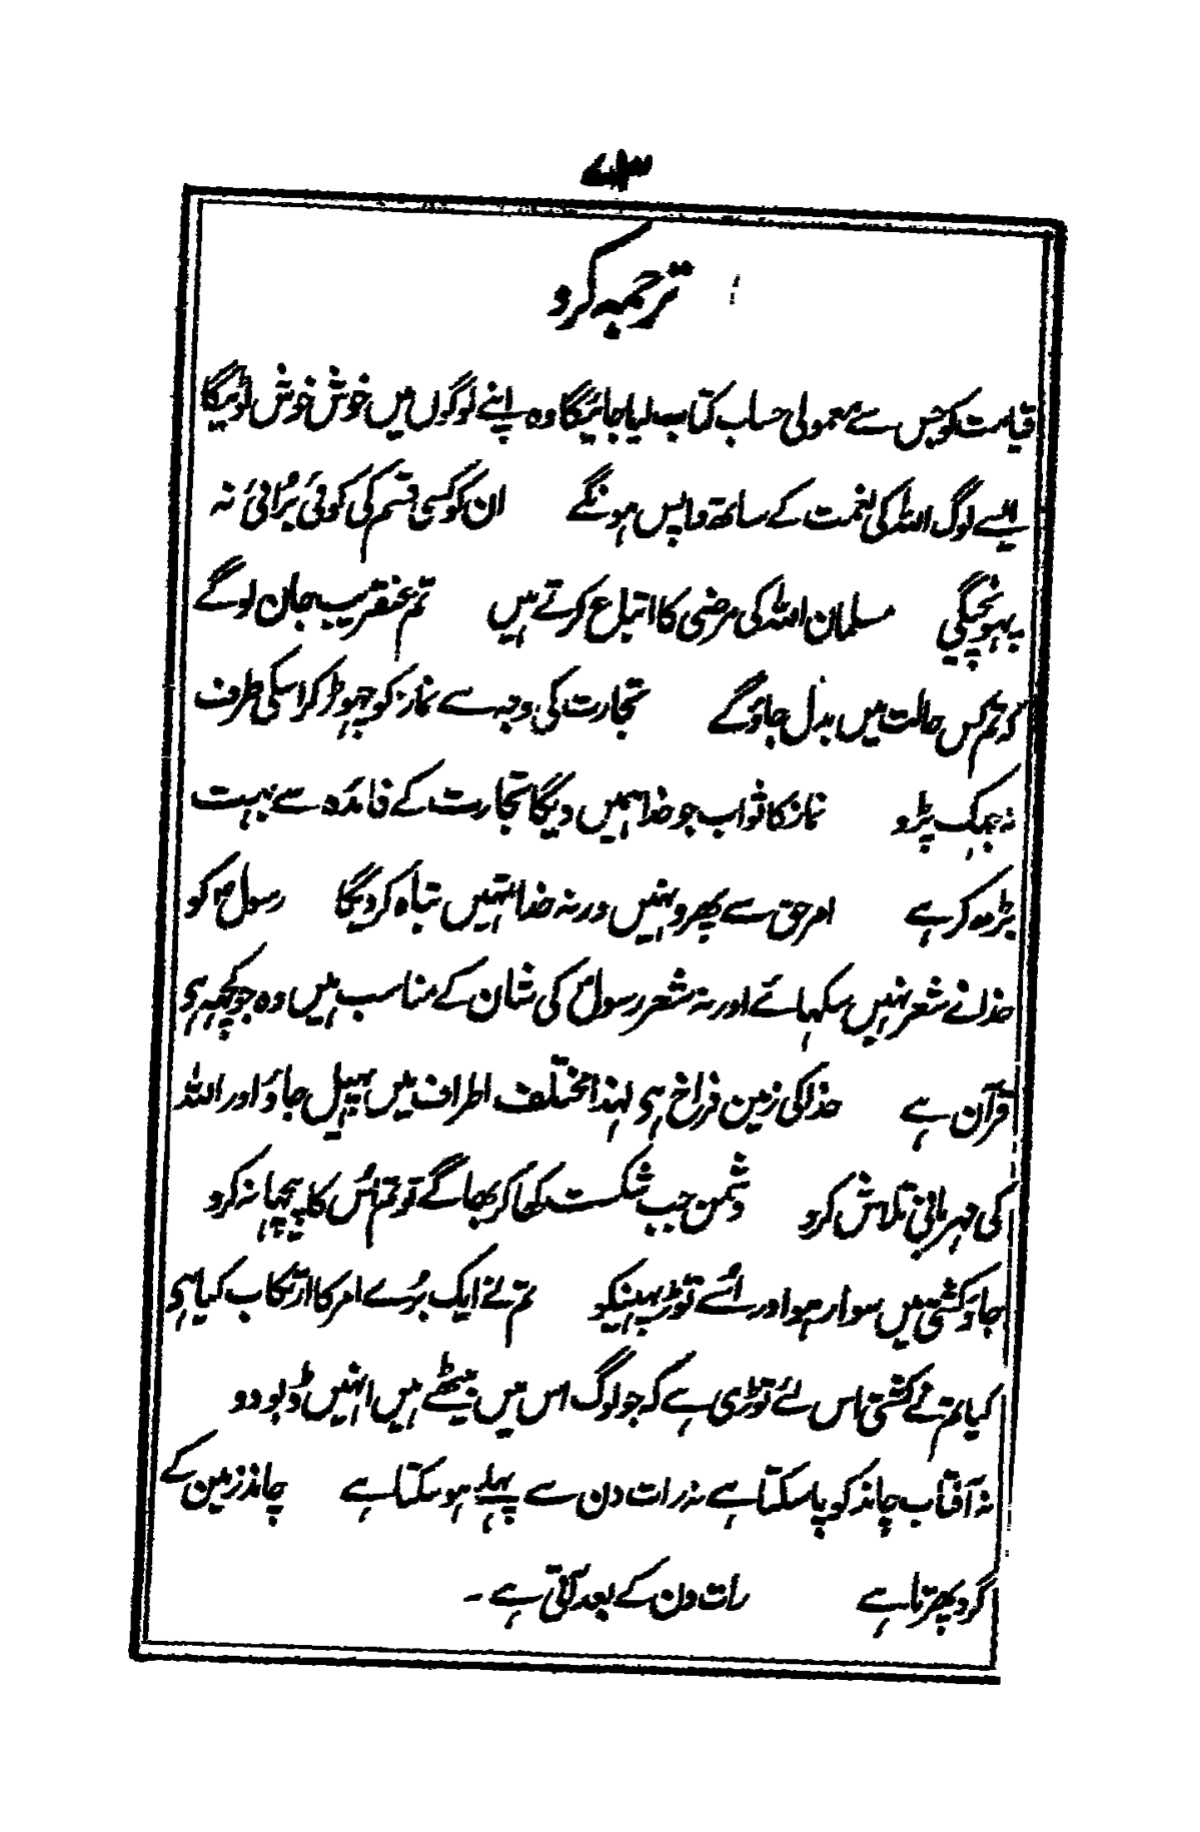 ۷۳
ترجمہ کرو
قیامت کو جس سے معمولی حساب کتاب لیا جائیگا وہ اپنے لوگوں میں خوش خوش لوٹیگا
ایسے لوگ اللہ کی نعمت کے ساتھ واپس ہونگے ان کو کسی قسم کی کوئی بُرائی نہ
پہونچیگی مسلمان اللہ کی مرضی کا اتباع کرتے ہیں تم عنقریب جان لوگے
کہ تم کس حالت میں بدل جاؤگے تجارت کی وجہ سے نماز کو چہوڑ کر اسکی طرف
نہ جہک پڑو نماز کا ثواب جو خدا ہمیں دیگا تجارت کے فائدہ سے بہت
بڑھ کر ہے امر حق سے پھرو نہیں ورنہ خدا تمہیں تباہ کر دیگا رسولؐ کو
خدا نے شعر نہیں سکہائے اور نہ شعر رسولؐ کی شان کے مناسب ہیں وہ جو کچہہ ہی
قرآن ہے خدا کی زمین فراخ ہی لہذا مختلف اطراف میں پہیل جاؤ اور اللہ
کی مہربانی تلاش کرو دشمن جب شکست کھا کر بھاگے تو تم اُس کا پیچھا نہ کرو
جاؤ کشتی میں سوار ہو اور اُسے توڑ پہینکو تم نے ایک بُرے امر کا ارتکاب کیا ہی
کیا تم نے کشتی اس لئے توڑی ہے کہ جو لوگ اس میں بیٹھے ہیں انہیں ڈبو دو
نہ آفتاب چاند کو پا سکتا ہے نہ رات دن سے پہلے ہو سکتا ہے چاند زمین کے
گرد پھرتا ہے رات دن کے بعد آتی ہے ۔